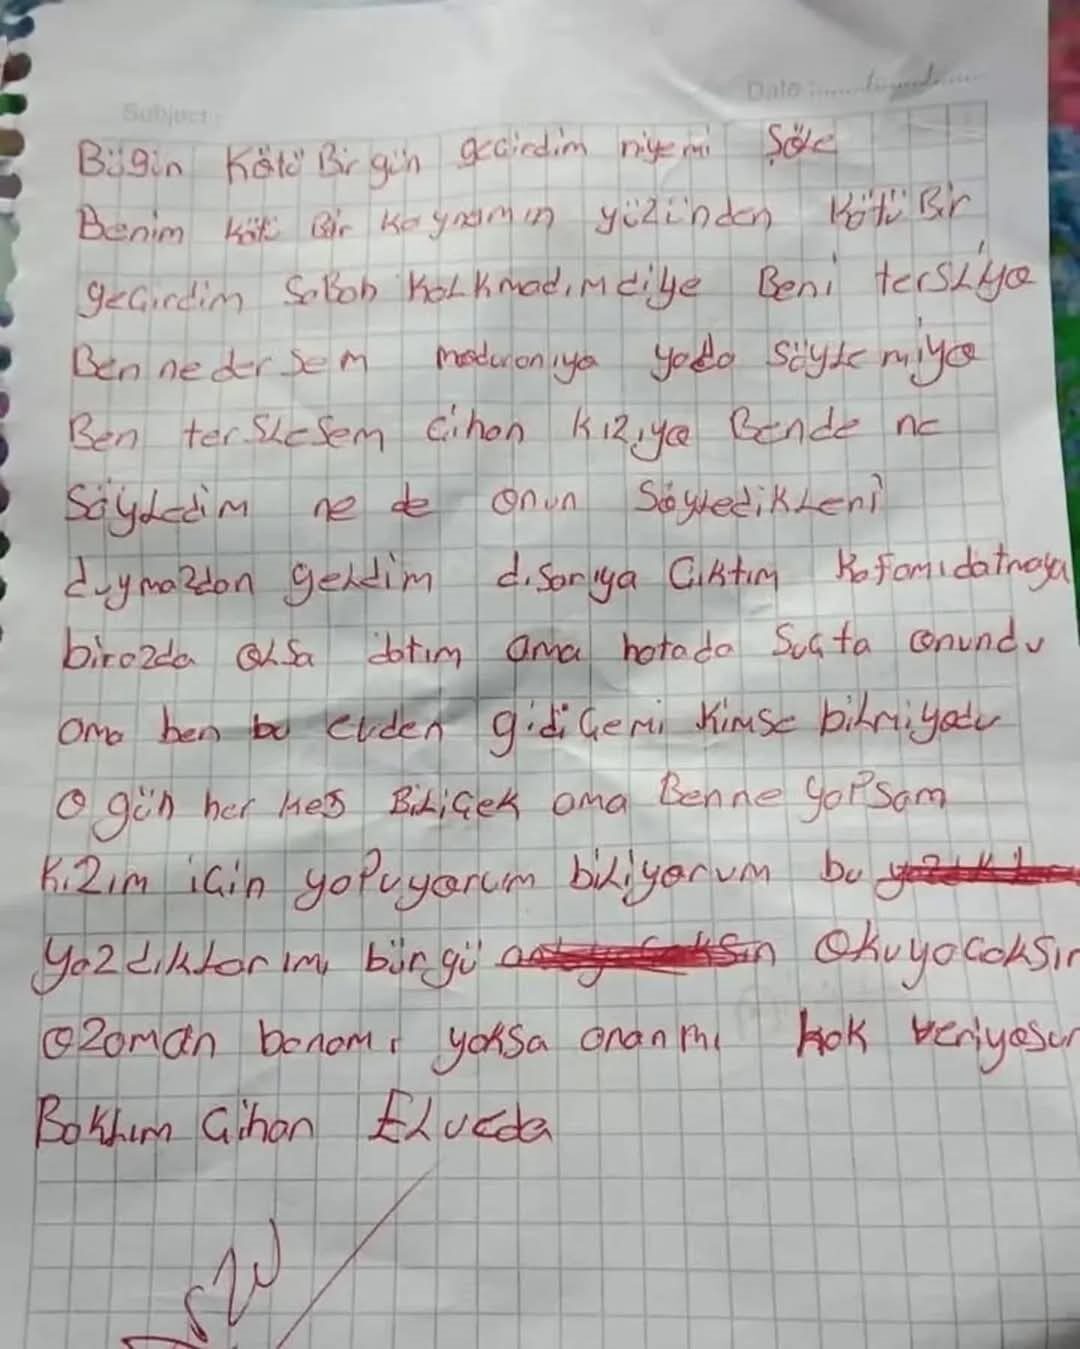 Subject: Date:
Bügin Kötü Bir gün gecirdim niyemi Şöle
Benim kötü Bir kaynamın yüzünden Kötü Bir
gecirdim Sabah KaLkmadım diye Beni tersLiya
Ben ne dersem maduraniya yada söyLemiya
Ben tersLesem Cihan kızıya Bende ne
SöyLedim ne de onun SöyledikLeni
duymazdan geLdim dısarıya Cıktım Kafamı datmaya
birazda oLsa datım ama hatada Suçta onundu
ama ben bu evden gidiÇemi Kimse biLmiyadu
O gün her kes BiLiÇek ama Ben ne YaPsam
Kızım için yaPuyorum biLiyorum bu
yazdıkLarımı bürgü Okuyacaksın
ozaman banamı yoksa onanmı hak veriyosun
BakLım Cihan ELveda